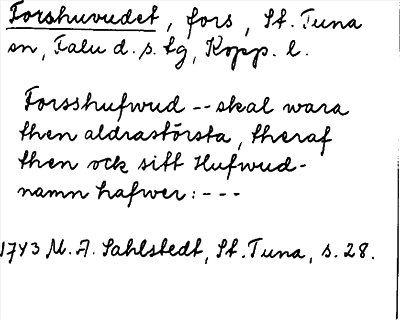 Forshuvudet, fors, St. Tuna
sn, Falu d. s. tg, Kopp. l.
Forsshufwud -- skal wara
then aldrastörsta, theraf
then ock sitt Hufwud-
namn hafwer: ---
1743 M. A. Sahlstedt, St. Tuna, s. 28.